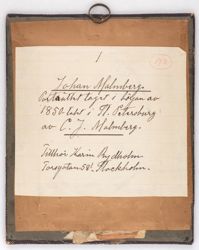 1
Johan Malmberg.
Porträttet taget i början av
1850-talet i St. Petersburg
av C. J. Malmberg.
Tillhör Karin Rydholm
Torsgatan 58. Stockholm.